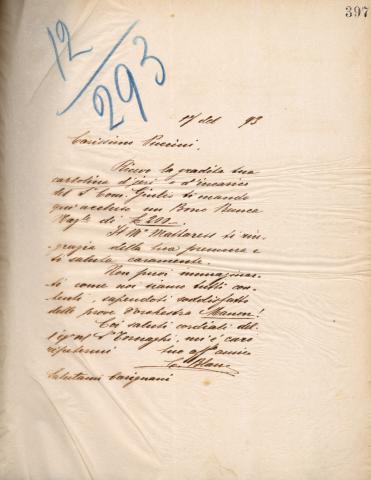 397
12/293
17 del 93
Carissimo Puccini,
Ricevo la gradita tua
cartolina d'jeri e d'incarico
del S. Com. Giulio ti mando
qui accluso un Bono Banca
Nazle di £ 200.
Il Mo Mattaress ti rin-
grazia della tua premura e
ti saluta caramente.
Non puoi immaginar-
ti come noi siamo tutti con-
tenti, sapendoti soddisfatto
delle prove d'orchestra Manon!
Coi saluti cordiali del-
l'egro S. Tornaghi, mi è caro
ripetermi tuo aff amico
C. Blanc
Salutami Carignani